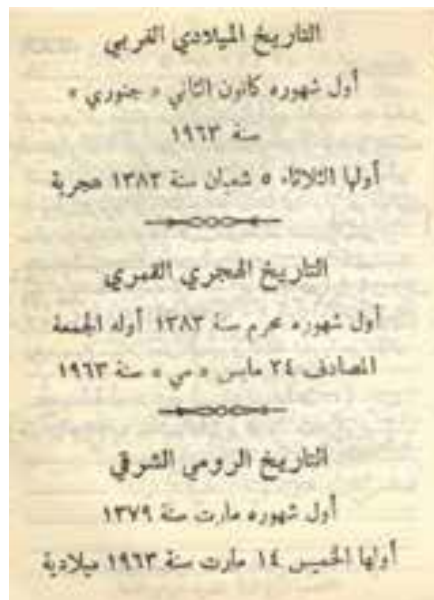 التاريخ الميلادي الغربي
أول شهوره كانون الثاني « جنوري »
سنة ١٩٦٣
أولها الثلاثاء ٥ شعبان سنة ١٣٨٢ هجرية
التاريخ الهجري القمري
أول شهوره محرم سنة ١٣٨٣ أوله الجمعة
المصادف ٢٤ مايس « مي » سنة ١٩٦٣
التاريخ الرومي الشرقي
أول شهوره مارت سنة ١٣٧٩
أولها الخميس ١٤ مارت سنة ١٩٦٣ ميلادية